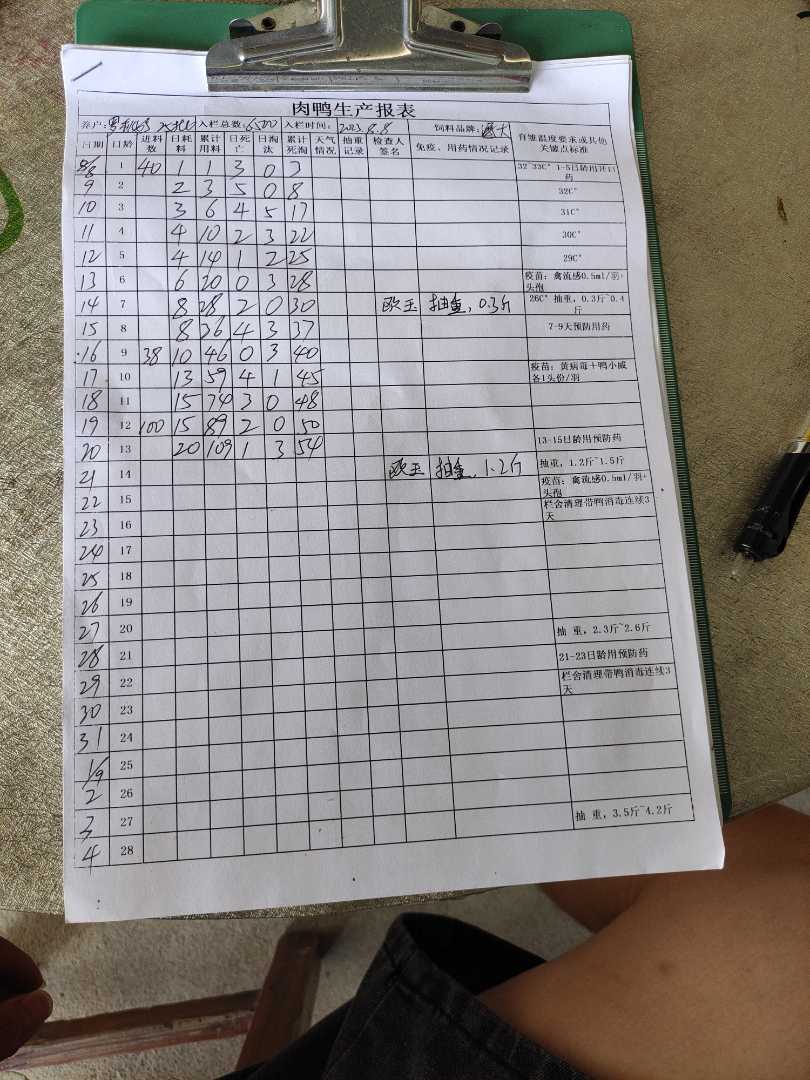 肉鸭生产报表
养户: 入栏总数: 6500 入栏时间: 2023.8.8 饲料品牌:
日期 日龄 进料数 日耗料 累计用料 日死亡 日淘汰 累计死淘 天气情况 抽重记录 检查人签名 免疫、用药情况记录 育雏温度要求或其他关键点标准
8/8 1 40 1 1 3 0 3 32~33C° 1-5日龄用开口药
9 2 2 3 5 0 8 32C°
10 3 3 6 4 5 17 31C°
11 4 4 10 2 3 22 30C°
12 5 4 14 1 2 25 29C°
13 6 6 20 0 3 28 疫苗：禽流感0.5ml/羽+头孢
14 7 8 28 2 0 30 欧玉 抽重, 0.3斤 26C° 抽重, 0.3斤~0.4斤
15 8 8 36 4 3 37 7-9天预防用药
16 9 38 10 46 0 3 40
17 10 13 59 4 1 45 疫苗：黄病毒+鸭小威各1头份/羽
18 11 15 74 3 0 48
19 12 100 15 89 2 0 50
20 13 20 109 1 3 54 13-15日龄用预防药
21 14 欧玉 抽重, 1.2斤 抽重, 1.2斤~1.5斤
22 15 疫苗：禽流感0.5ml/羽+头孢
23 16 栏舍清理带鸭消毒连续3天
24 17
25 18
26 19
27 20 抽 重, 2.3斤~2.6斤
28 21 21-23日龄用预防药
29 22 栏舍清理带鸭消毒连续3天
30 23
31 24
1/9 25
2 26
3 27 抽 重, 3.5斤~4.2斤
4 28